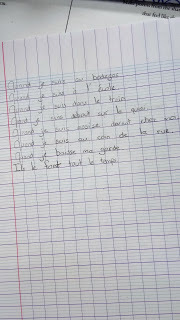 Quand je suis au
Quand je suis à l'école
Quand je suis dans le train
Quand je suis debout sur le quai
Quand je suis assise devant chez moi
Quand je suis au coin de la rue
Quand je baisse ma garde
Ils le font tout le temps.